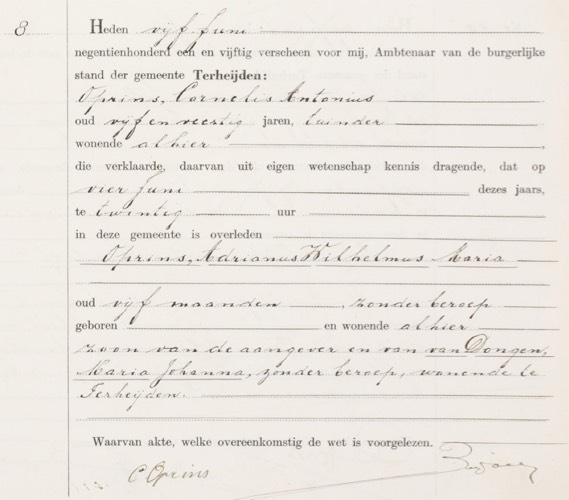 8
Heden vijf Juni
negentienhonderd een en vijftig verscheen voor mij, Ambtenaar van de burgerlijke
stand der gemeente Terheijden:
Oprins, Cornelis Antonius
oud vijf en veertig jaren, tuinder
wonende alhier ,
die verklaarde, daarvan uit eigen wetenschap kennis dragende, dat op
vier Juni dezes jaars,
te twintig uur
in deze gemeente is overleden
Oprins, Adrianus Wilhelmus Maria
oud vijf maanden , zonder beroep
geboren en wonende alhier
zoon van de aangever en van van Dongen,
Maria Johanna, zonder beroep, wonende te
Terheijden.
Waarvan akte, welke overeenkomstig de wet is voorgelezen.
C Oprins